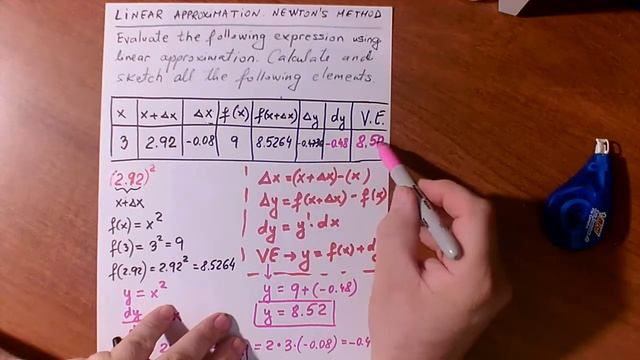 LINEAR APPROXIMATION. NEWTON'S METHOD
Evaluate the following expression using
linear approximation. Calculate and
sketch all the following elements.
x x+Δx Δx f(x) f(x+Δx) Δy dy V.E.
3 2.92 -0.08 9 8.5264 -0.4736 -0.48 8.52
(2.92)²
x+Δx
f(x) = x²
f(3) = 3² = 9
f(2.92) = 2.92² = 8.5264
y = x²
dy
Δx = (x+Δx) - (x)
Δy = f(x+Δx) - f(x)
dy = y' · dx
VE → y = f(x) + d
y = 9 + (-0.48)
y = 8.52
= 2 · 3 · (-0.08) = -0.4